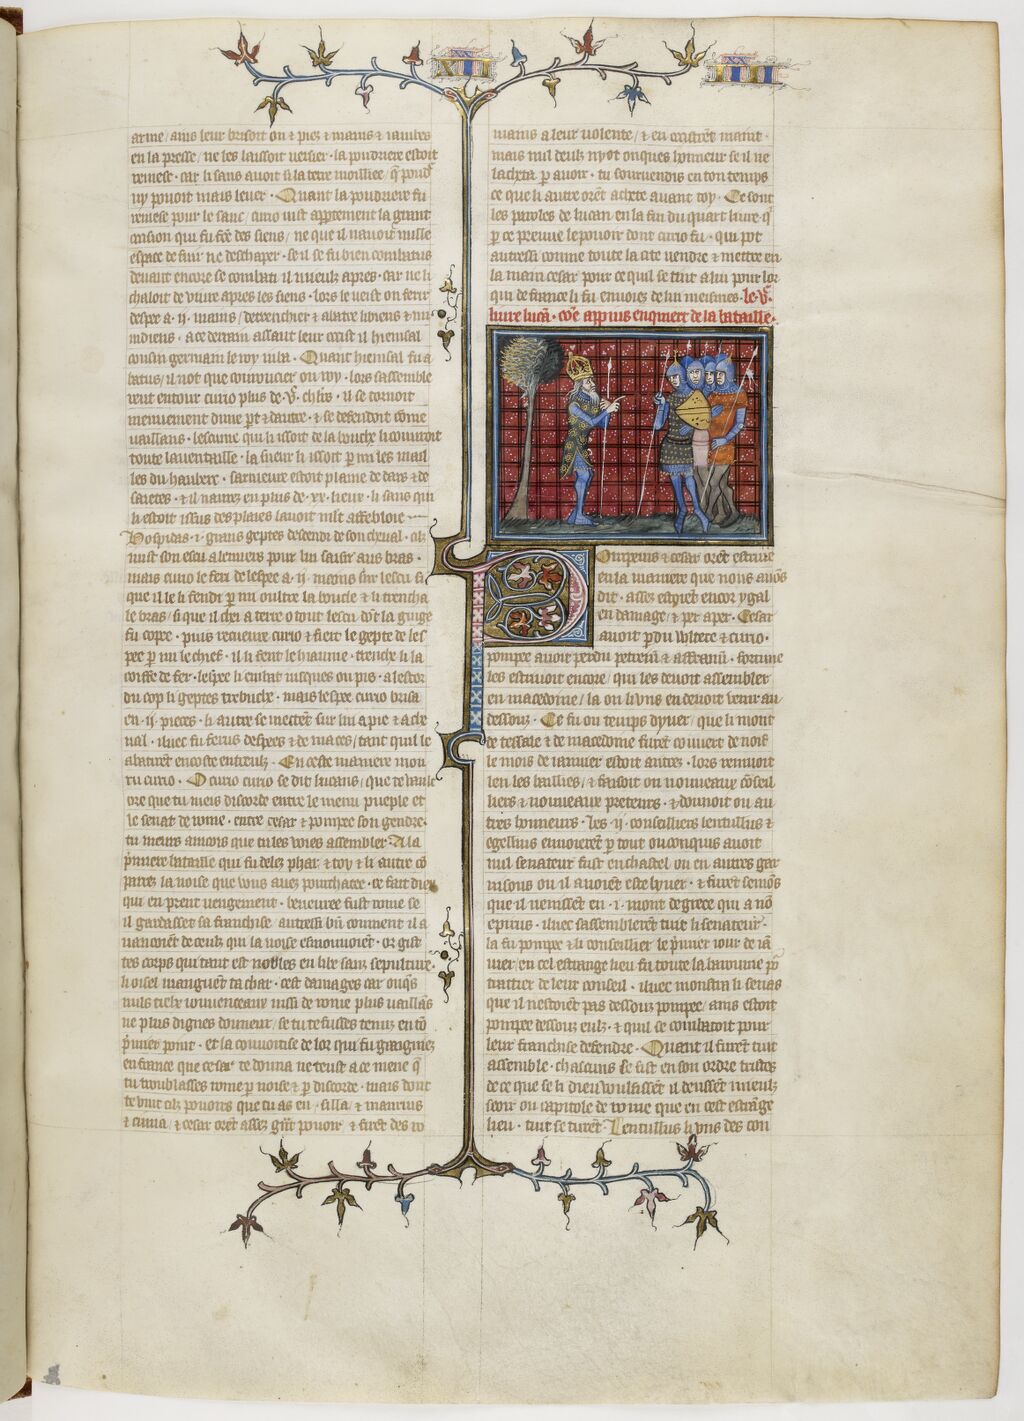 XII
XX
III
arme / ains leur brisoit on ⁊ piez ⁊ mains ⁊ iambes
en la presse / ne les laissoit verser · la poudriere estoit
remese · car li sans auoit si la terre moilliee / q̄ poudre
ny pouoit mais leuer · Quant la poudriere fu
remese pour le sanc / curio vist appertement la grant
occision qui fu fcē des siens / ne que il nauoit nulle
espace de fuir ne deschaper · se il se fu bien combatus
deuant encore se combati il mieulz apres · car ne li
chaloit de viure apres les siens · lors le veist on ferir
despee a · ii · mains / detrenchier ⁊ abatre libiens ⁊ nu
midiens · a ce derrain assaut leur creist il hiemsal
cousin germain le roy iuba · Quant hiemsal fu a
batus / il not que courroucier ou roy · lors sassemble
rent entour curio plus de · vͨ · chl'rs · il se tornoit
menuement dune pt̄ ⁊ dautre · ⁊ se defendoit cōme
vaillans · lescume qui li issoit de la bouche li couuroit
toute la ventaille · la sueur li issoit p̱ mi les mail
les du haubert · sarmeure estoit plaine de dars ⁊ de
saietes · ⁊ il naurez en plus de · xx · lieux · li sans qui
li estoit issus des plaies lauoit mlt̄ affebloie
Hospitas · i · grans geptes descendi de son cheual · cil
mist son escu a lencontre pour lui saisir aus bras ·
mais curio le feri de lespee a · ii · mains sur lescu si
que il le li fendi p̱ mi oultre la boucle ⁊ li trencha
le bras / si que il chei a terre o tout lescu dōt la guige
fu copee · puis recueure curio ⁊ fiert le gepte de les
pee p̱ mi le chief · il li fent le hiaume · trenche li la
coiffe de fer · lespee li embat iusques ou pis · a lestor
du cop li geptes trebuche · mais lespee curio brisa
en · ii · pieces · li autre se mectent sur lui a pie ⁊ a che
ual · iluec fu ferus despees ⁊ de maces / tant quil le
abatirent encoste entreulz · En ceste maniere mou
ru curio · O curio curio se dit lucans / que te vault
ore que tu meis discorde entre le menu pueple et
le senat de rome · entre cesar ⁊ pompee son gendre ·
tu meurs aincois que tu les voies assembler A la
p̄miere bataille qui fu delez phar · ⁊ toy ⁊ li autre cō
parez la noise que vous auez pourchacee · ce fait dieu
qui en prent vengement · beneuree fust rome se
il gardassent sa franchise / autressi bn̄ comment il a
uancoiēt de ceulz qui la noise esmouuoiēt · or gist
tes corps qui tant est nobles en libe sanz sepulture ·
li oisel manguēt ta char · cest damages car onqs̄
nuls tiels iouuenceaux nissi de rome plus vaillās
ne plus dignes donneur / se tu te fusses tenuz en tō
p̄mier point · et la couuoitise de lor qui fu gaaigniez
en france que cesar te donna ne teust a ce mene q̄
tu troublasses rome p̱ noise ⁊ p̱ discorde · mais dont
te vint cilz pouoirs que tu as eu · silla / ⁊ marius
⁊ cinna / ⁊ cesar orēt assez grāt pouoir / ⁊ furēt des ro
mains a leur volente / ⁊ en occistrēt maint ·
mais nul deulz nyot onques honneur se il ne
lacheta p̱ auoir · tu souruendis en ton temps
ce que li autre orēt achete auant toy · Ce sont
les paroles de lucan en la fin du quart liure · q̄
p̱ ce preuue le pouoir dont curio fu · qui pot
autressi comme toute la cite vendre ⁊ mettre en
la main cesar pour ce quil se tint a lui pour lor
qui de france li fu enuoiez de lui meismes · le · vͤ ·
liure lucā · cōe appius enquiert de la bataille ·
Pompeius ⁊ cesar orēt estriue
en la maniere que nous auōs
dit · assez estoiēt encor ygal
en damage / ⁊ per a per · Cesar
auoit p̱du vltere ⁊ curio ·
pompee auoit perdu petreiū ⁊ affraniū · fortune
les estriuoit encore / qui les deuoit assembler
en macedoine / la ou li vns en deuoit venir au
dessouz · Ce fu ou temps dyuer / que li mont
de tessale ⁊ de macedoine furēt couuert de noif
le mois de ianuier estoit entrez · lors remuoit
len les baillies / ⁊ faisoit on nouueaux cōseil
liers ⁊ nouueaux preteurs · ⁊ donnoit on au
tres honneurs · les · ii · conseilliers lentullus ⁊
egellius enuoierēt p̱ tout ou conques auoit
nul senateur fust en chastel ou en autres gar
nisons ou il auoiēt este lyuer · ⁊ furēt semōs
que il uenissent en · i · mont de grece qui a nō
epirus · iluec sassemblerēt tuit li senateur ·
la fu pompee ⁊ li conseillier le p̄mier iour de iā
uier / en cel estrange lieu fu toute la baronnie p̱
traitier de leur conseil · iluec monstra li senas
que il nestoiēt pas dessouz pompee / ains estoit
pompee dessouz eulz · ⁊ quil se combatoit pour
leur franchise defendre · Quant il furēt tuit
assemble · chascuns se sist en son ordre tristes
de ce que se li dieu voulassēt il deussēt mieulz
seoir ou capitole de rome que en cest estrāge
lieu · tuit se turēt Lentullus li vns des con